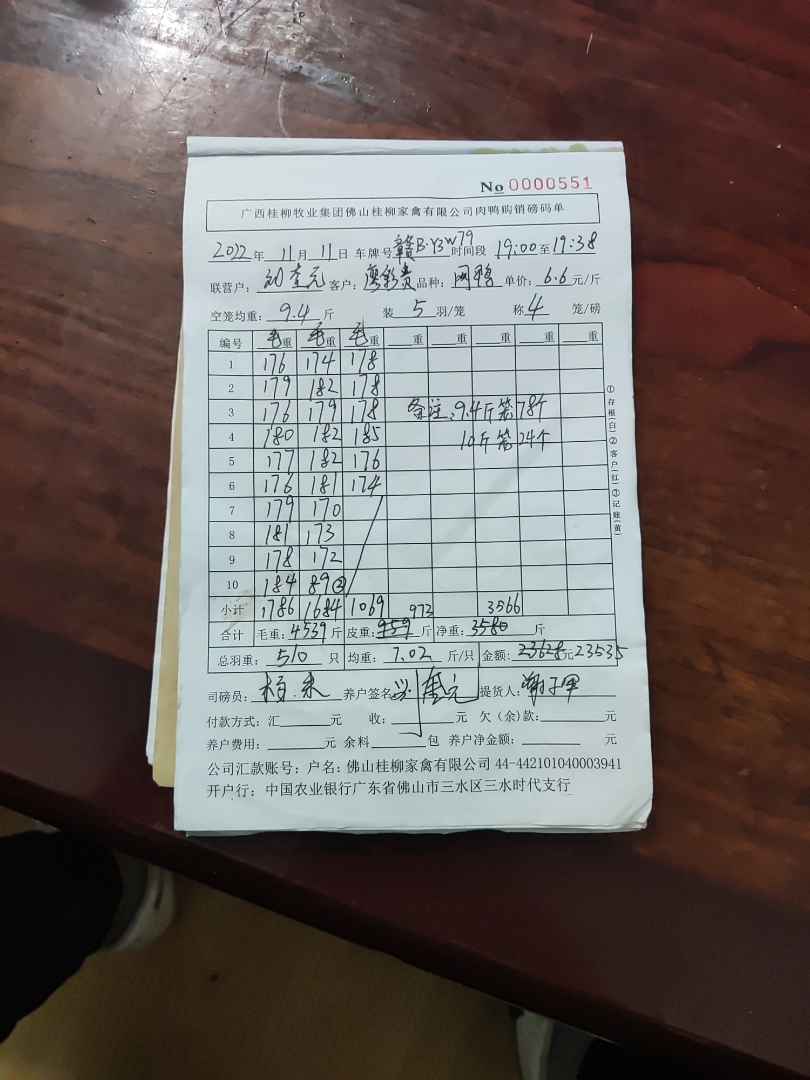 No 0000551
广西桂柳牧业集团佛山桂柳家禽有限公司肉鸭购销磅码单
2022年 11月 11日 车牌号赣B·Y3W79时间段 19:00至19:38
联营户: 奎元 客户: 彩贵 品种: 单价: 6.6元/斤
空笼均重: 9.4 斤 装 5 羽/笼 称 4 笼/磅
编号 毛重 毛重 毛重 重 重 重 重 重
1 176 174 178
2 179 182 178
3 176 179 178 备注:9.4斤笼78个
4 180 182 185 10斤笼24个
5 177 182 176
6 176 181 174
7 179 170
8 181 173
9 178 172
10 184 89②
小计 1786 1684 1069 973 3566
合计 毛重:4539斤 皮重:959斤 净重:3580 斤
总羽重: 510 只 均重: 7.02 斤/只 金额:23628元23535
司磅员: 养户签名 奎元 提货人:
付款方式:汇 元 收: 元 欠(余)款: 元
养户费用: 元 余料 包 养户净金额: 元
公司汇款账号:户名:佛山桂柳家禽有限公司 44-442101040003941
开户行:中国农业银行广东省佛山市三水区三水时代支行
①存根(白)②客户(红)③记账(黄)